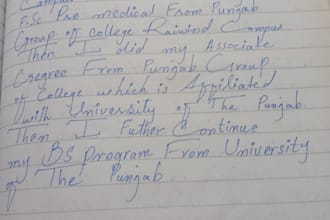 Campus
F.Sc Pre medical From Punjab
Group of college Raiwind Campus.
Then I did my Associate
Degree From Punjab Group
of College which is Affiliated
with University of The Punjab.
Then I Futher Continue
my BS program From University
of The Punjab.